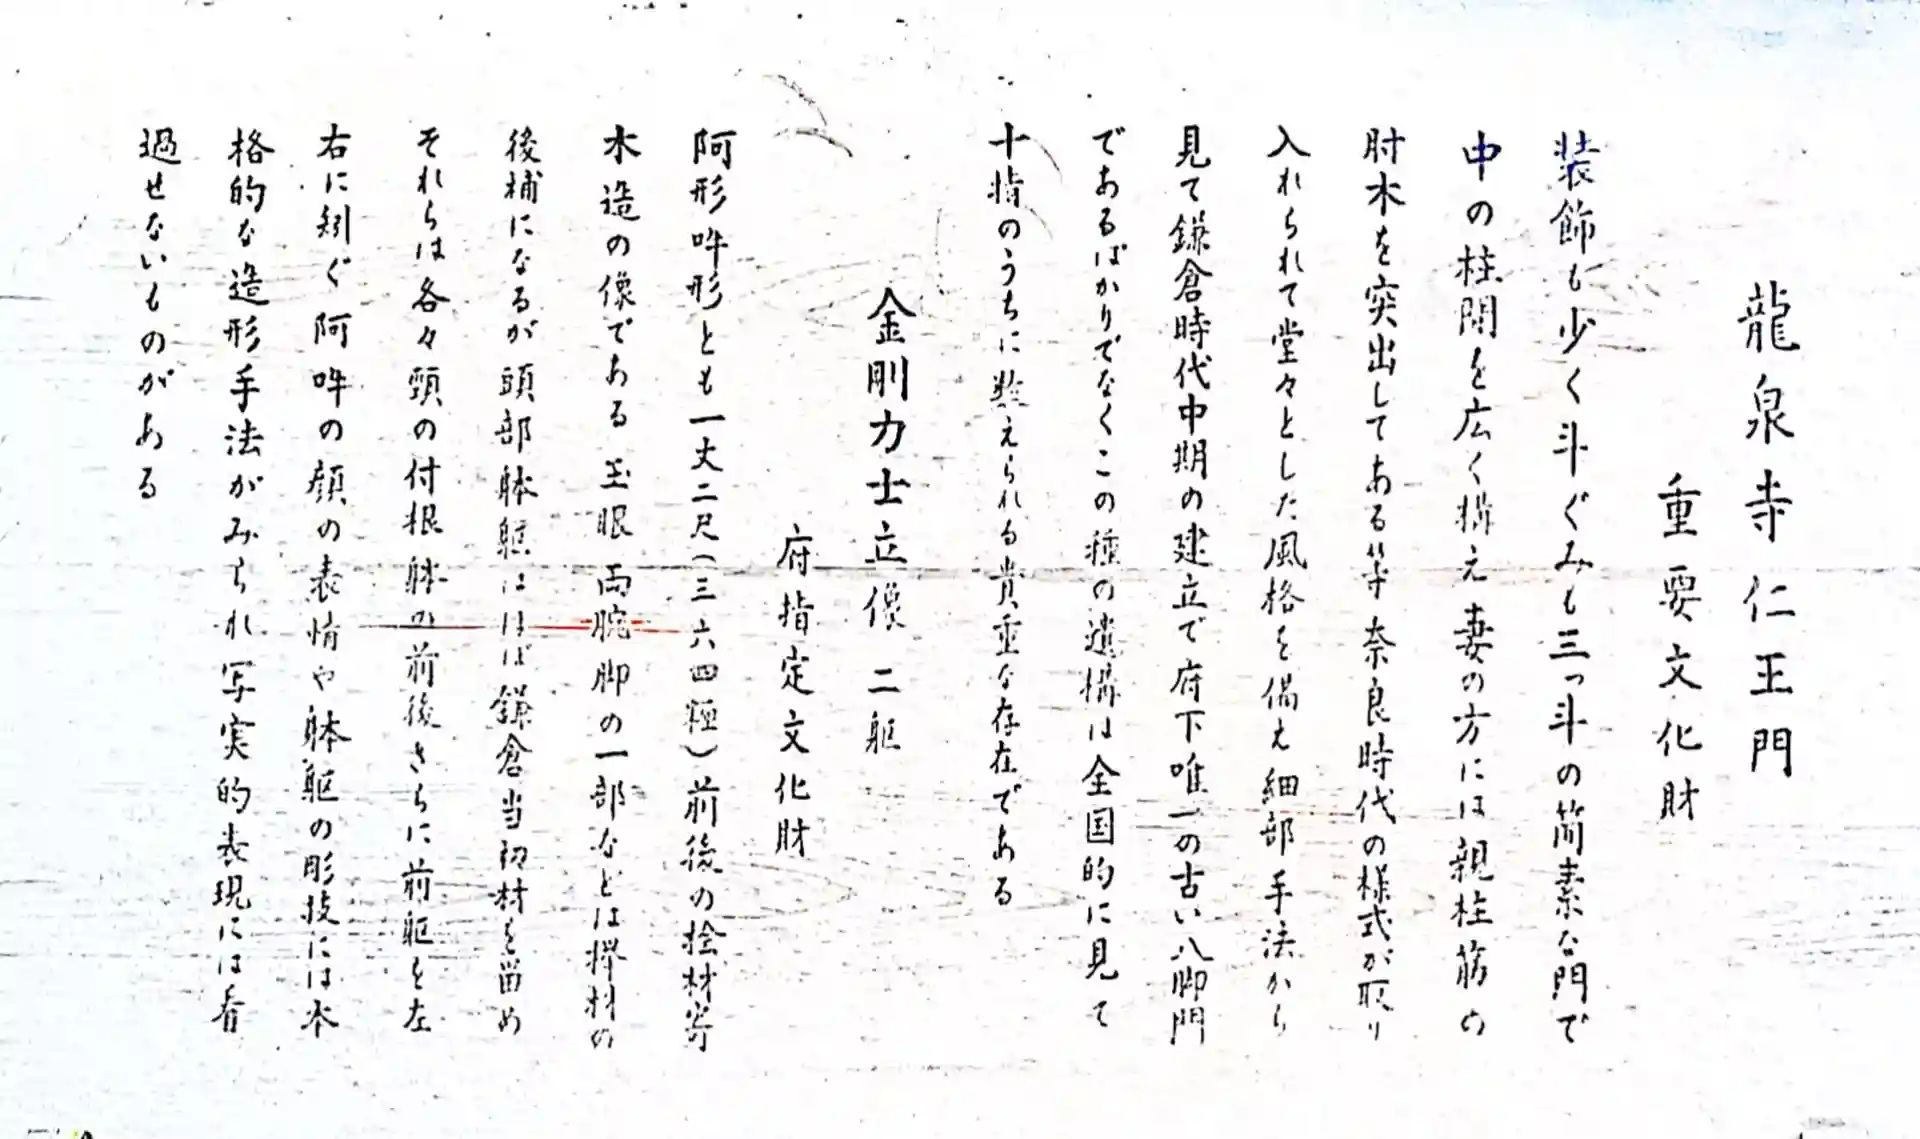 龍泉寺仁王門
重要文化財
装飾も少く斗ぐみも三っ斗の簡素な門で
中の柱間を広く構え妻の方には親柱筋の
肘木を突出してある等奈良時代の様式が取り
入れられて堂々とした風格を備え細部手法から
見て鎌倉時代中期の建立で府下唯一の古い八脚門
であるばかりでなくこの種の遺構は全国的に見て
十指のうちに数えられる貴重な存在である
金剛力士立像 二躯
府指定文化財
阿形吽形とも一丈二尺(三六四糎)前後の桧材寄
木造の像である 玉眼両腕脚の一部などは欅材の
後補になるが頭部躰躯はほぼ鎌倉当初材を留め
それらは各々頸の付根躰の前後さらに前躯を左
右に矧ぐ 阿吽の顔の表情や躰躯の彫技には本
格的な造形手法がみられ写実的表現には看
過せないものがある